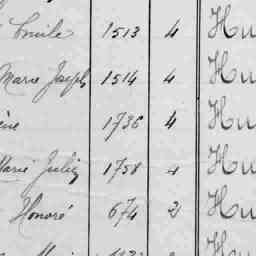 Emile 1513 4 Hu
Marie Joseph 1514 4 Hu
ène 1736 4 Hu
Marie Julie 1758 4 Hu
Honoré 674 2 Hu
Hu